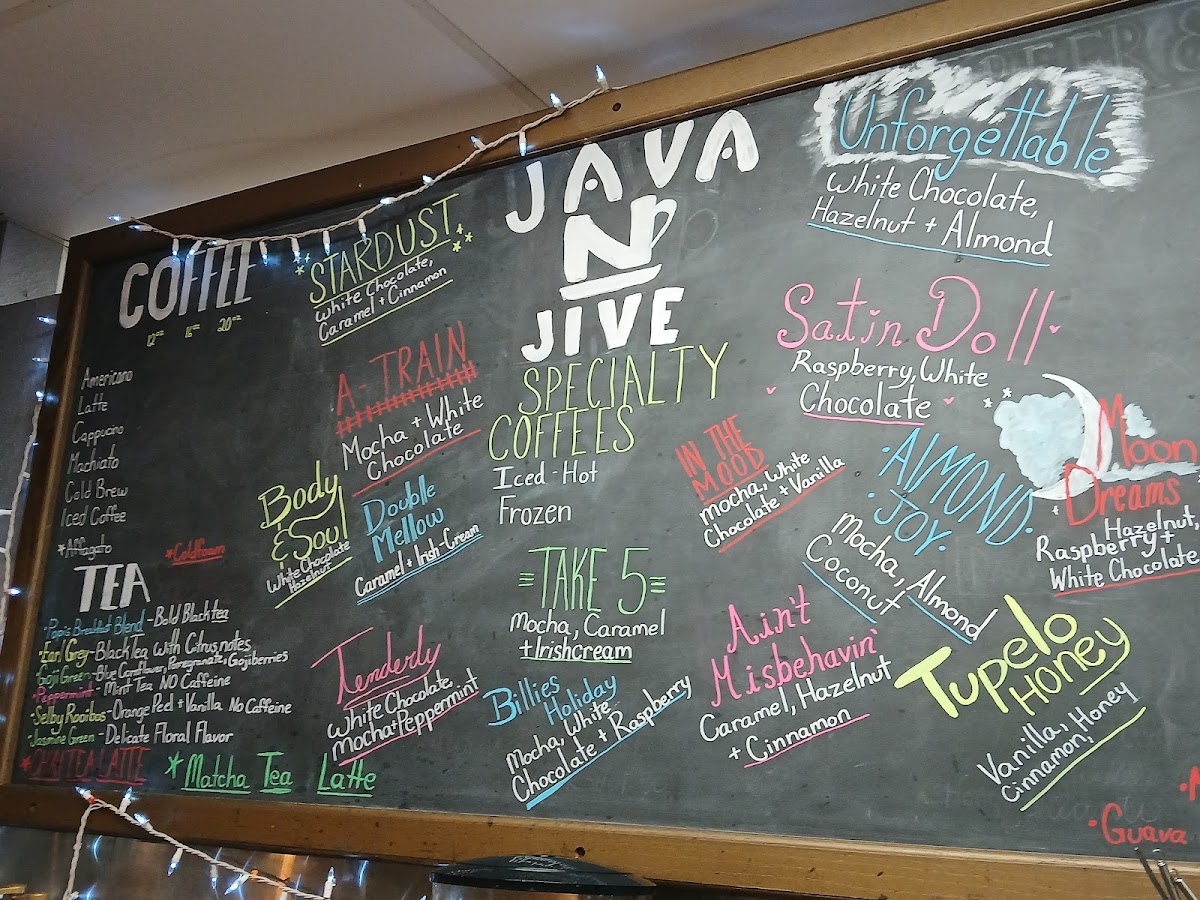 COFFEE
12oz 16oz 20oz
Americano
Latte
Cappucino
Machiato
Cold Brew
Iced Coffee
*Affagato
*Coldfoam
TEA
•Pop's Breakfast Blend - Bold Black tea
•Earl Grey - Black Tea with Citrus notes
•Goji Green - Blue Cornflower, Pomegranate, Gojiberries
•Peppermint - Mint Tea NO Caffeine
•Selby Rooibos - Orange Peel + Vanilla No Caffeine
•Jasmine Green - Delicate Floral Flavor
*CHAI TEA LATTE
*Matcha Tea Latte
STARDUST
White Chocolate,
Caramel + Cinnamon
A-TRAIN
Mocha + White
Chocolate
Body
& Soul
White Chocolate
Hazelnut
Double
Mellow
Caramel + Irish-Cream
Tenderly
White Chocolate,
Mocha + Peppermint
JAVA
N
JIVE
SPECIALTY
COFFEES
Iced - Hot
Frozen
TAKE 5
Mocha, Caramel
+ Irishcream
Billies
Holiday
Mocha, White
Chocolate + Raspberry
Unforgettable
White Chocolate,
Hazelnut + Almond
Satin Doll
Raspberry, White
Chocolate
IN THE
MOOD
Mocha, White
Chocolate + Vanilla
•ALMOND•
•JOY•
Mocha, Almond
Coconut
Moon
Dreams
Hazelnut,
Raspberry +
White Chocolate
Ain't
Misbehavin'
Caramel, Hazelnut
+ Cinnamon
Tupelo
HONEY
Vanilla, Honey
Cinnamon,
•Guava